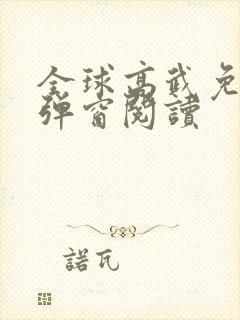 全球高武免
弹窗閱讀
諾瓦